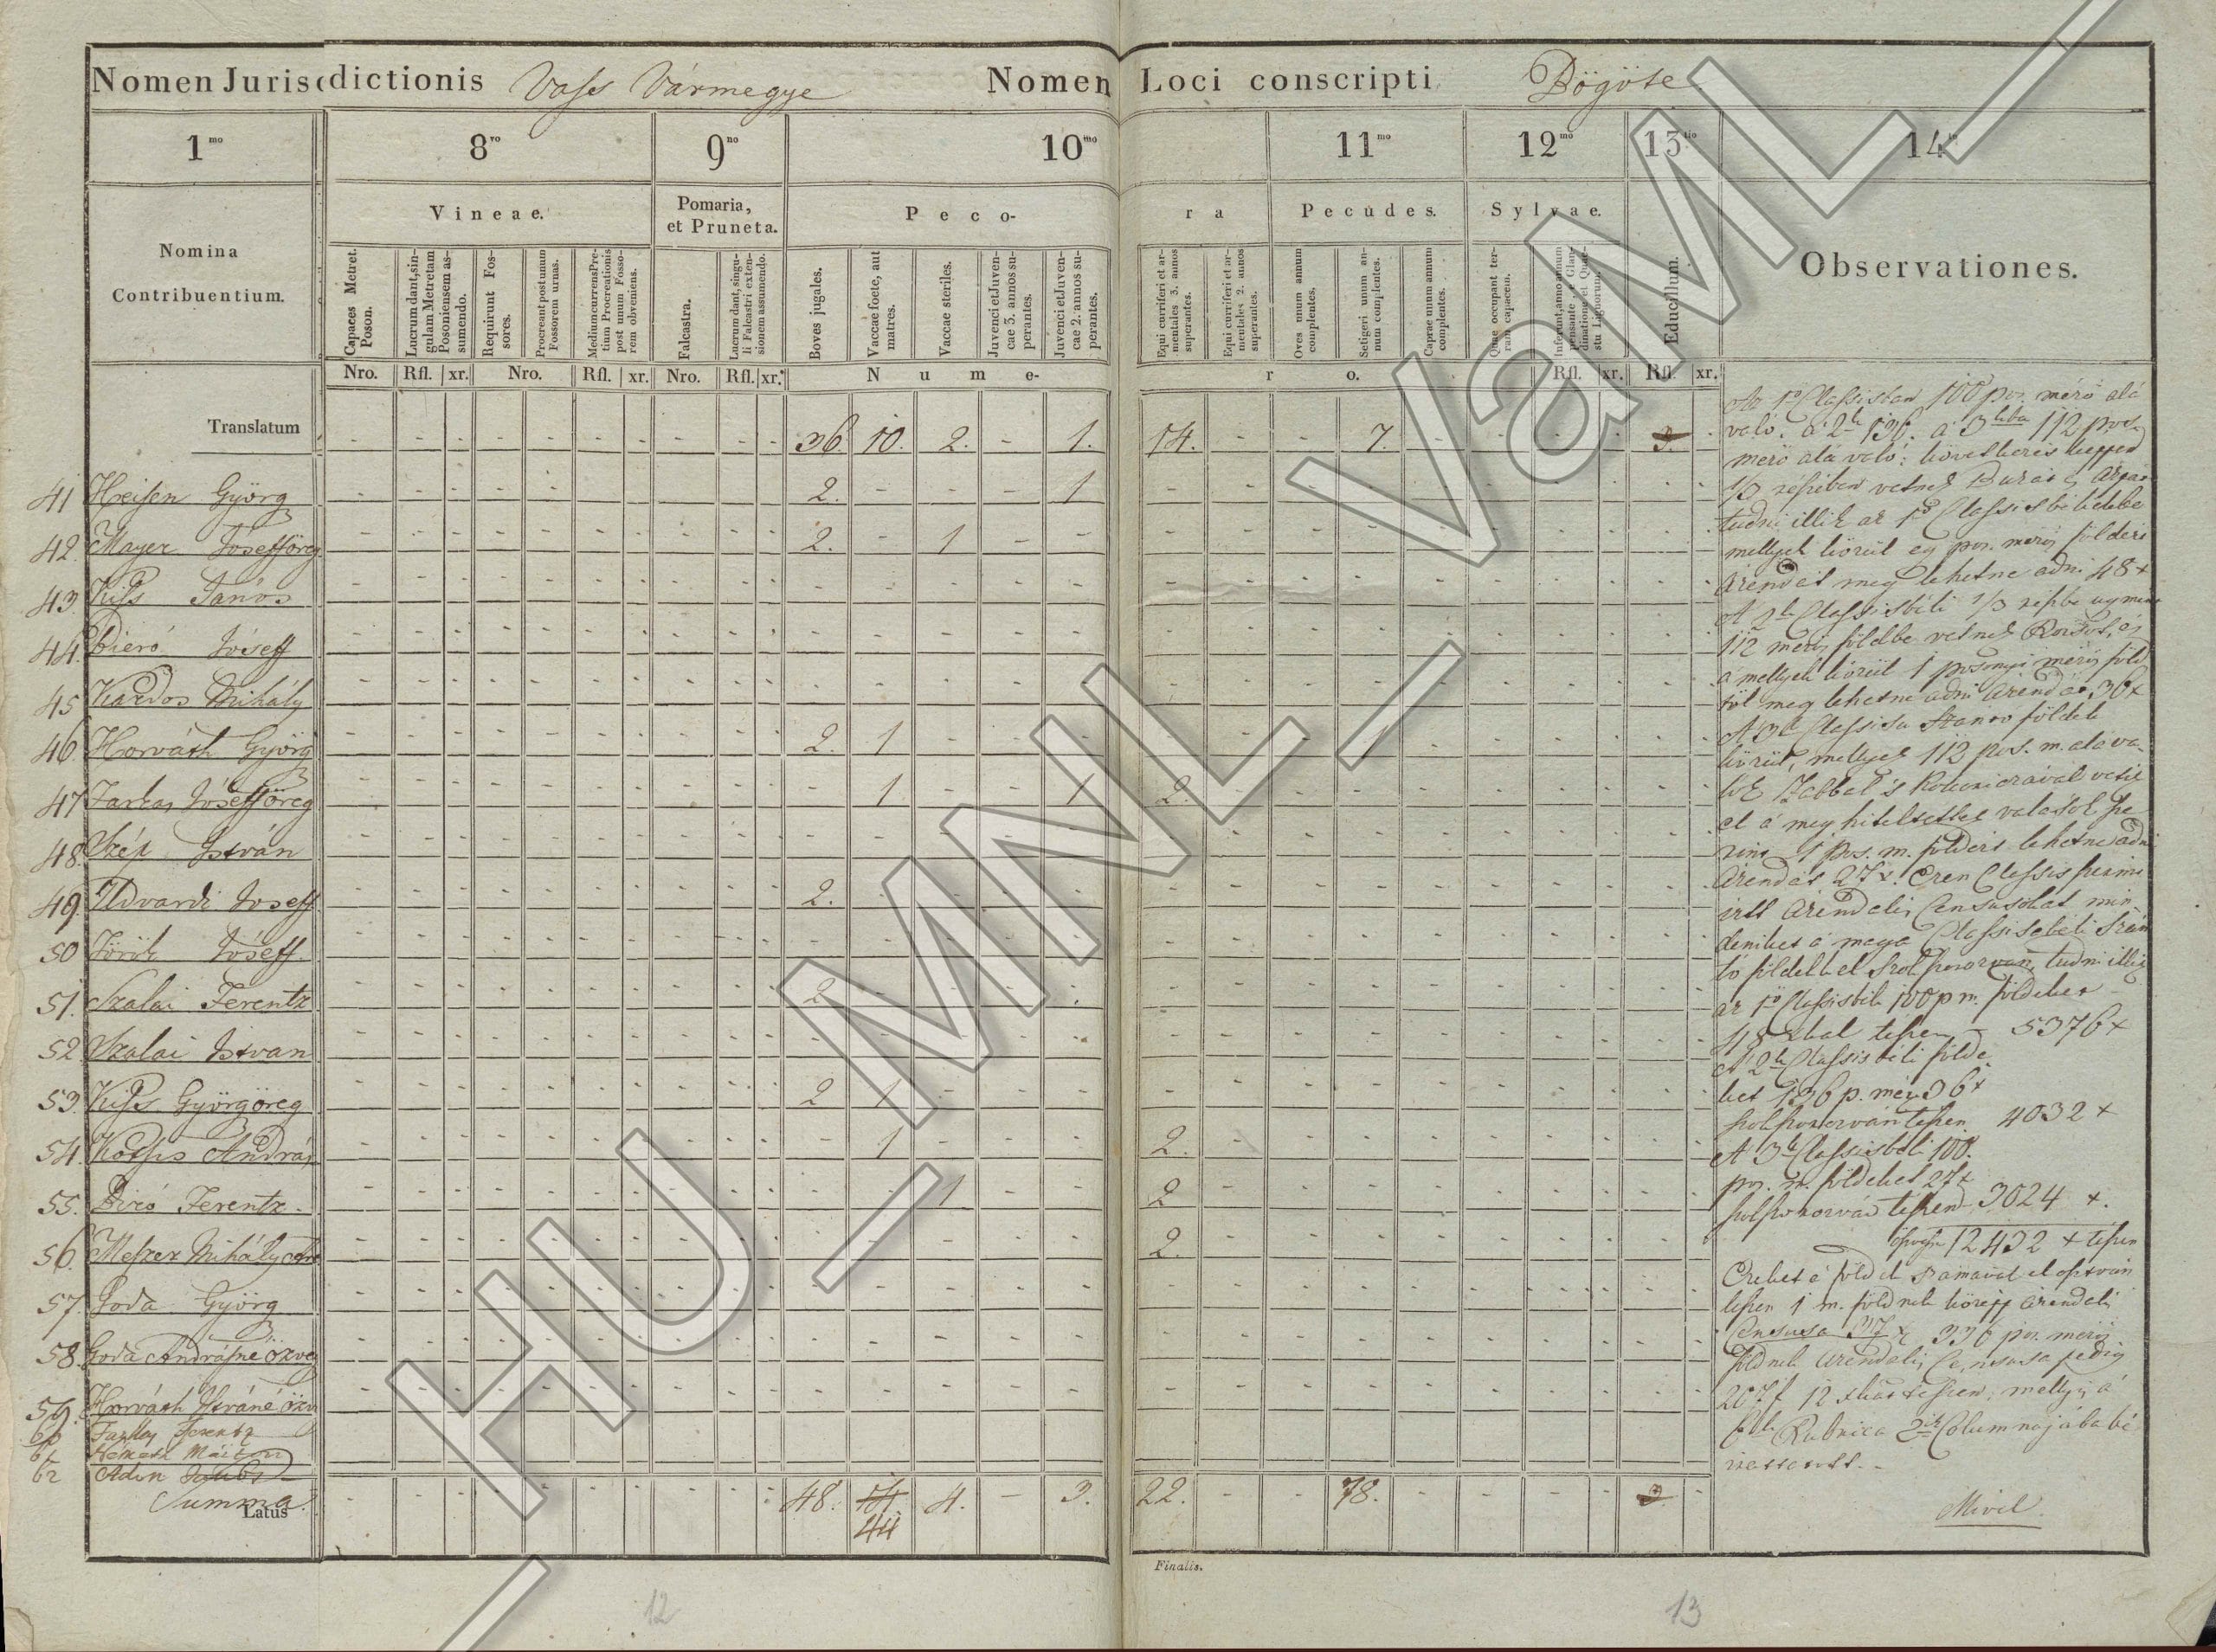 Nomen Jurisdictionis Vass Vármegye Nomen Loci conscripti Bögöte
1mo 8vo 9no 10mo 11mo 12mo 13tio 14to
Nomina Contribuentium.
Vineae.
Pomaria, et Pruneta.
Peco-
ra
Pecudes.
Sylvae.
Observationes.
Capaces Metret. Poson.
Lucrum dant, singulam Metretam Posoniensem assumendo.
Requirunt Fossores.
Procreant post unum Fossorem urnas.
Medium currens Pretium Procreationis post unum Fossorem obveniens.
Falcastra.
Lucrum dant, singuli Falcastri extensionem assumendo.
Boves jugales.
Vaccae foete, aut matres.
Vaccae steriles.
Juvenci et Juvencae 3. annos superantes.
Juvenci et Juvencae 2. annos superantes.
Equi curriferi et armentales 3. annos superantes.
Equi curriferi et armentales 2. annos superantes.
Oves unum annum complentes.
Setigeri unum annum complentes.
Caprae unum annum complentes.
Quae occupant terram capacem.
Educillum.
Nro. Rfl. xr. Nro. Rfl. xr. Nro. Rfl. xr. Nume-
ro. Rfl. xr. Rfl. xr.
Translatum 36. 10. 2. - 1. 14. - - 7. 3.
41 Heisen Györg 2. - - - 1
42. Mayer Joseff öreg 2. - 1 - -
43. Kiss János
44. Bieró Jóseff
45 Kardos Mihály
46. Horváth Györg 2. 1 1
47 Farkas Jóseff öreg 1 1 2.
48. Szép István
49. Udvardi Joseff 2.
50 Török Jóseff
51. Szalai Ferentz 2
52 Szalai Istvan
53. Kiss Györg öreg 2 1
54. Kotsis András 1 2.
55. Biró Ferentz 1 2
56. Meszer Mihály 2.
57. Goda Györg
58. Goda Andrásné özveg
59. Horváth Istváné özv
60 Farkas Ferentz
61 Németh Márton
62 Adin Jakab
Summa
Latus 48. 14 4. - 3. 22. - - 78. 3
44
Az 1ő Classisban 100 pos. mérő alá
való. a 2ik 136. a 3ikba 112 pos.
mérő alá való: következés keppen
1/3 részében vetnek Buzát és Árpát
tudni illik az 1ő Classisbeliekbe
mellyek körül eg pos. mérős földért
Árendát meg lehetne adni 48 x
A 2ik Classisbéli 1/3 részbe ugymint
112 mérős földbe vetnek Rozsot, és
a mellyek körül 1 posonyi mérős föld
töl meg lehetne adni Árendát 36 x
A 3ik Classisu Szántó földek
körül, mellyek 112 pos. m. alá va-
lók Zabbal s Kukoriczával vetik
el a meg hiteltettek valások sze-
rint 1 pos. m. földért lehetne adni
Árendát 27 x. Ezen Classis szerint
irtt Árendális Censusokat min-
deniket a maga Classisabéli Szán
tó földekkel szorozván, tudni illik
az 1ő Classisbéli 100 p m. földeket
48 xbal tészen - 5376 x
A 2ik Classisbéli földe
ket 136 p. mér. 36 x
szorozván tészen 4032 x
A 3ik Classisbéli 100.
pos. m. földeket 27 x
szorozván tészen 3024 x.
12432 x teszen
Ezeket a földek számával el osztván
leszen 1 m. földnek közép Árendalis
Censusa 37 x 336 pos. mérős
földnek Árendalis Censusa pedig
207 f 12 x
Rubrica Columnajába
Mivel.
Finalis.
12
13
HU_MNL_VaML_